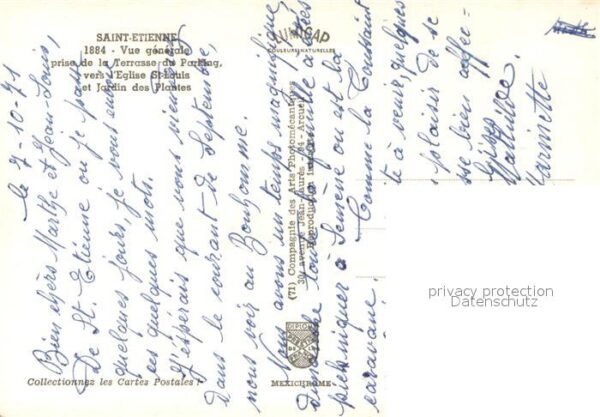 SAINT-ETIENNE
1884 - Vue générale
prise de la Terrasse du Parking,
vers l'Eglise St-Louis
et Jardin des Plantes
LUMICAP
COULEURS NATURELLES
le 7-10-71
Bien chers Marthe et Jean-Louis,
De St. Etienne où je passe
quelques jours, je vous envoie
ces quelques mots.
J'espérais que vous viendriez
dans le courant de Septembre,
nous voir au Bonhomme.
Nous avons un temps magnifique,
dimanche toute la famille a
pique niquer à Semène où est la
caravane. Comme la Toussaint
à venir, quelques
plaisir de se
sse bien affec-
Gisèle
Mathilde.
Marinette
(71) Compagnie des Arts Photomécaniques
avenue Jean-Jaurès - 94 - Arcueil
Reproduction interdite
MEXICHROME
Collectionnez les Cartes Postales !
privacy protection
Datenschutz